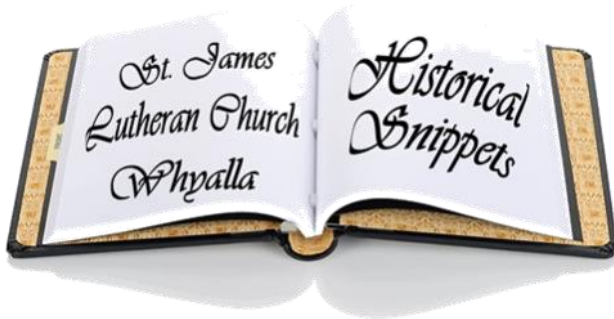 St. James
Lutheran Church
Whyalla
Historical
Snippets